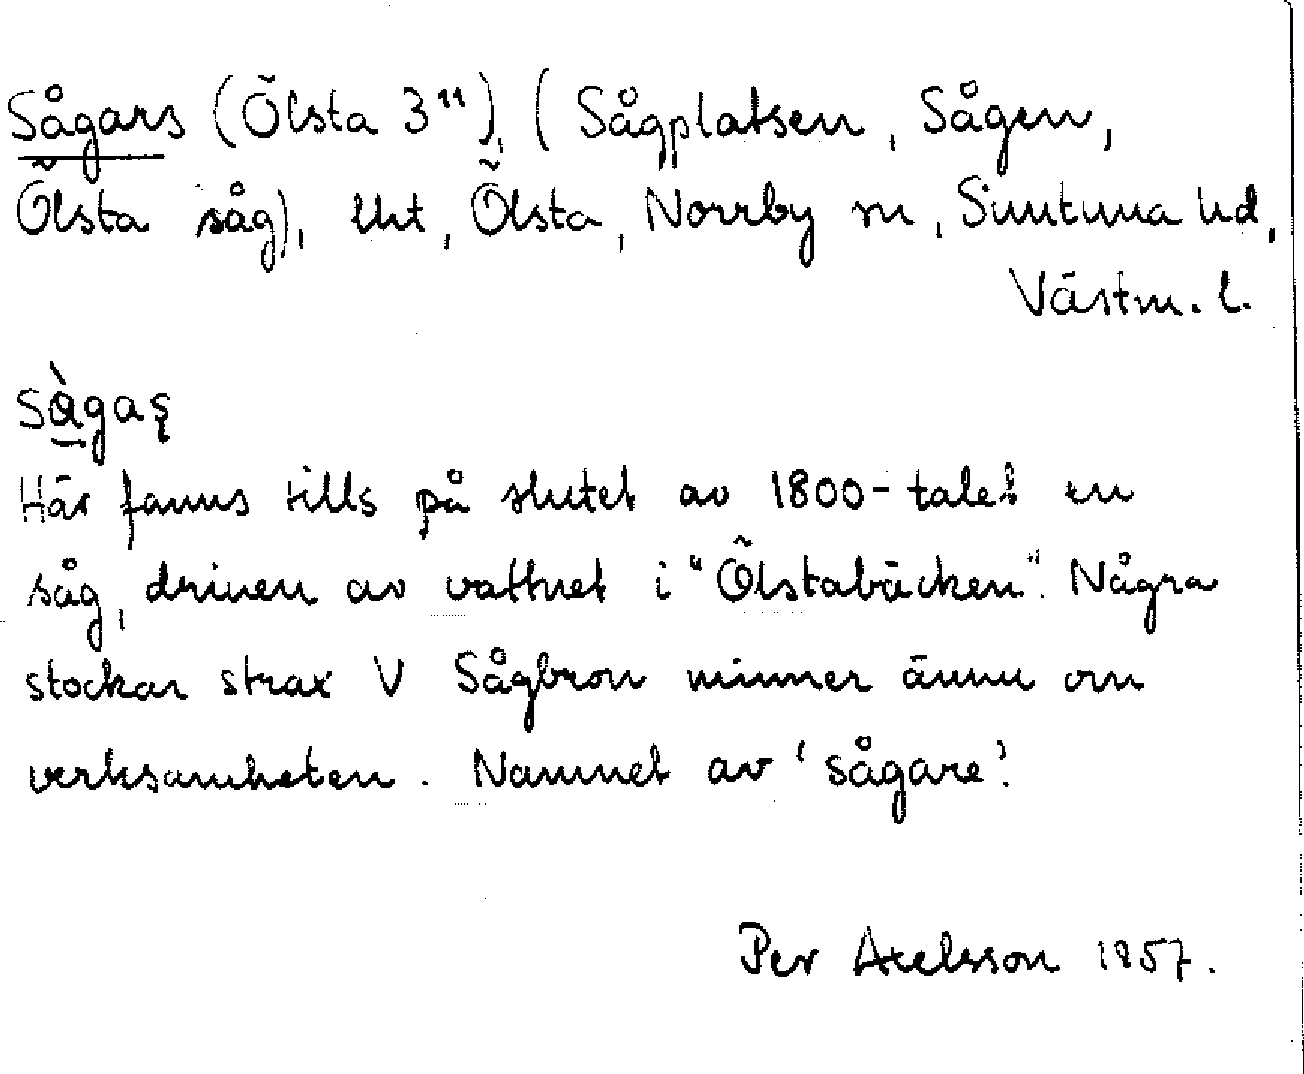 Sågars (Ölsta 3¹¹), (Sågplatsen, Sågen,
Ölsta såg), lht, Ölsta, Norrby sn, Simtuna hd,
Västm. l.
sågas̨
Här fanns tills på slutet av 1800-talet en
såg, driven av vattnet i "Ölstabäcken". Några
stockar strax V Sågbron minner ännu om
verksamheten. Namnet av 'sågare'.
Per Axelsson 1957.